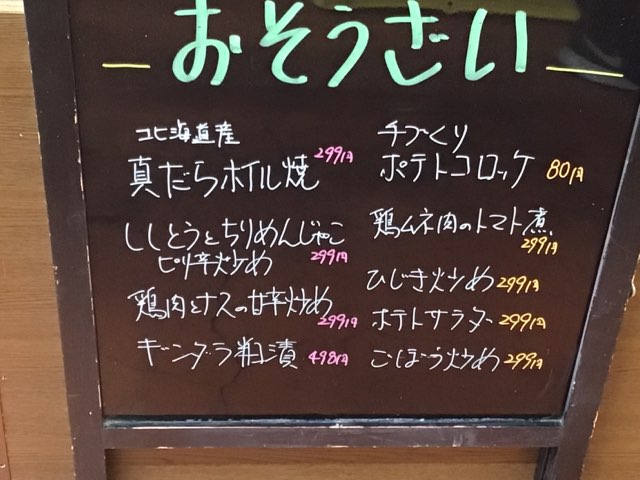 おそうざい
北海道産
真だらホイル焼 299円
ししとうとちりめんじゃこ
ピリ辛炒め 299円
鶏肉とナスの甘辛炒め
299円
ギンダラ粕漬 498円
手づくり
ポテトコロッケ 80円
鶏ムネ肉のトマト煮
299円
ひじき炒め 299円
ポテトサラダ 299円
ごぼう炒め 299円